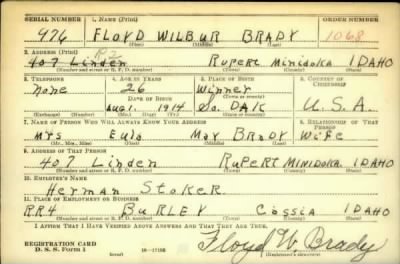 SERIAL NUMBER 1. NAME (Print) ORDER NUMBER
476 FLOYD WILBUR BRADY 1068
(First) (Middle) (Last)
2. ADDRESS (Print) R2
407 Linden Rupert Minidoka IDAHO
(Number and street or R. F. D. number) (Town) (County) (State)
3. TELEPHONE 4. AGE IN YEARS 5. PLACE OF BIRTH 6. COUNTRY OF CITIZENSHIP
None 26 Winner
DATE OF BIRTH (Town or county)
Aug 1. 1914 So. DAK U.S.A.
(Exchange) (Number) (Mo.) (Day) (Yr.) (State or country)
7. NAME OF PERSON WHO WILL ALWAYS KNOW YOUR ADDRESS 8. RELATIONSHIP OF THAT PERSON
Mrs Eula May Brady Wife
(Mr., Mrs., Miss) (First) (Middle) (Last)
9. ADDRESS OF THAT PERSON
407 Linden Rupert Minidoka IDAHO
(Number and street or R. F. D. number) (Town) (County) (State)
10. EMPLOYER'S NAME
Herman Stoker
11. PLACE OF EMPLOYMENT OR BUSINESS
RR4 Burley Cassia IDAHO
(Number and street or R. F. D. number) (Town) (County) (State)
I AFFIRM THAT I HAVE VERIFIED ABOVE ANSWERS AND THAT THEY ARE TRUE.
REGISTRATION CARD
D. S. S. Form 1 Floyd W Brady
(Registrant's signature)